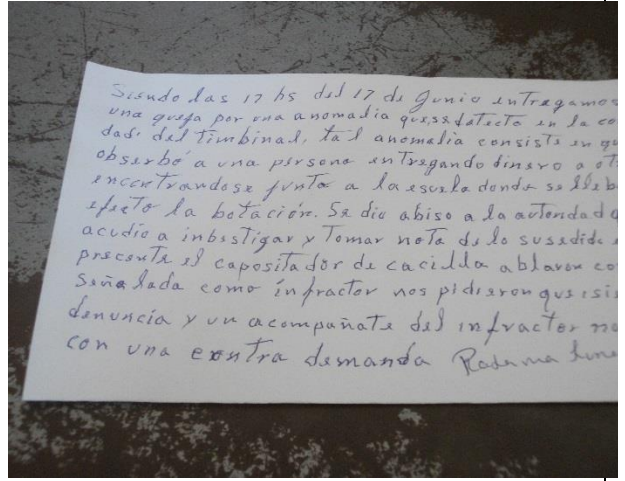 Siendo las 17 hs del 17 de Junio entregamos
una queja por una anomalia que se detecto en la co
dad del timbinal, tal anomalia consiste en qu
obserbó a una persona entregando dinero a ot
encontrandose junto a la escuela donde se lleb
efecto la botación. Se dio abiso a la autoridad
acudio a inbestigar y Tomar nota de lo susedido
precente el capositador de cacilla ablaron co
Señalada como infractor nos pidieron que isi
denuncia y un acompañate del infractor
con una contra demanda